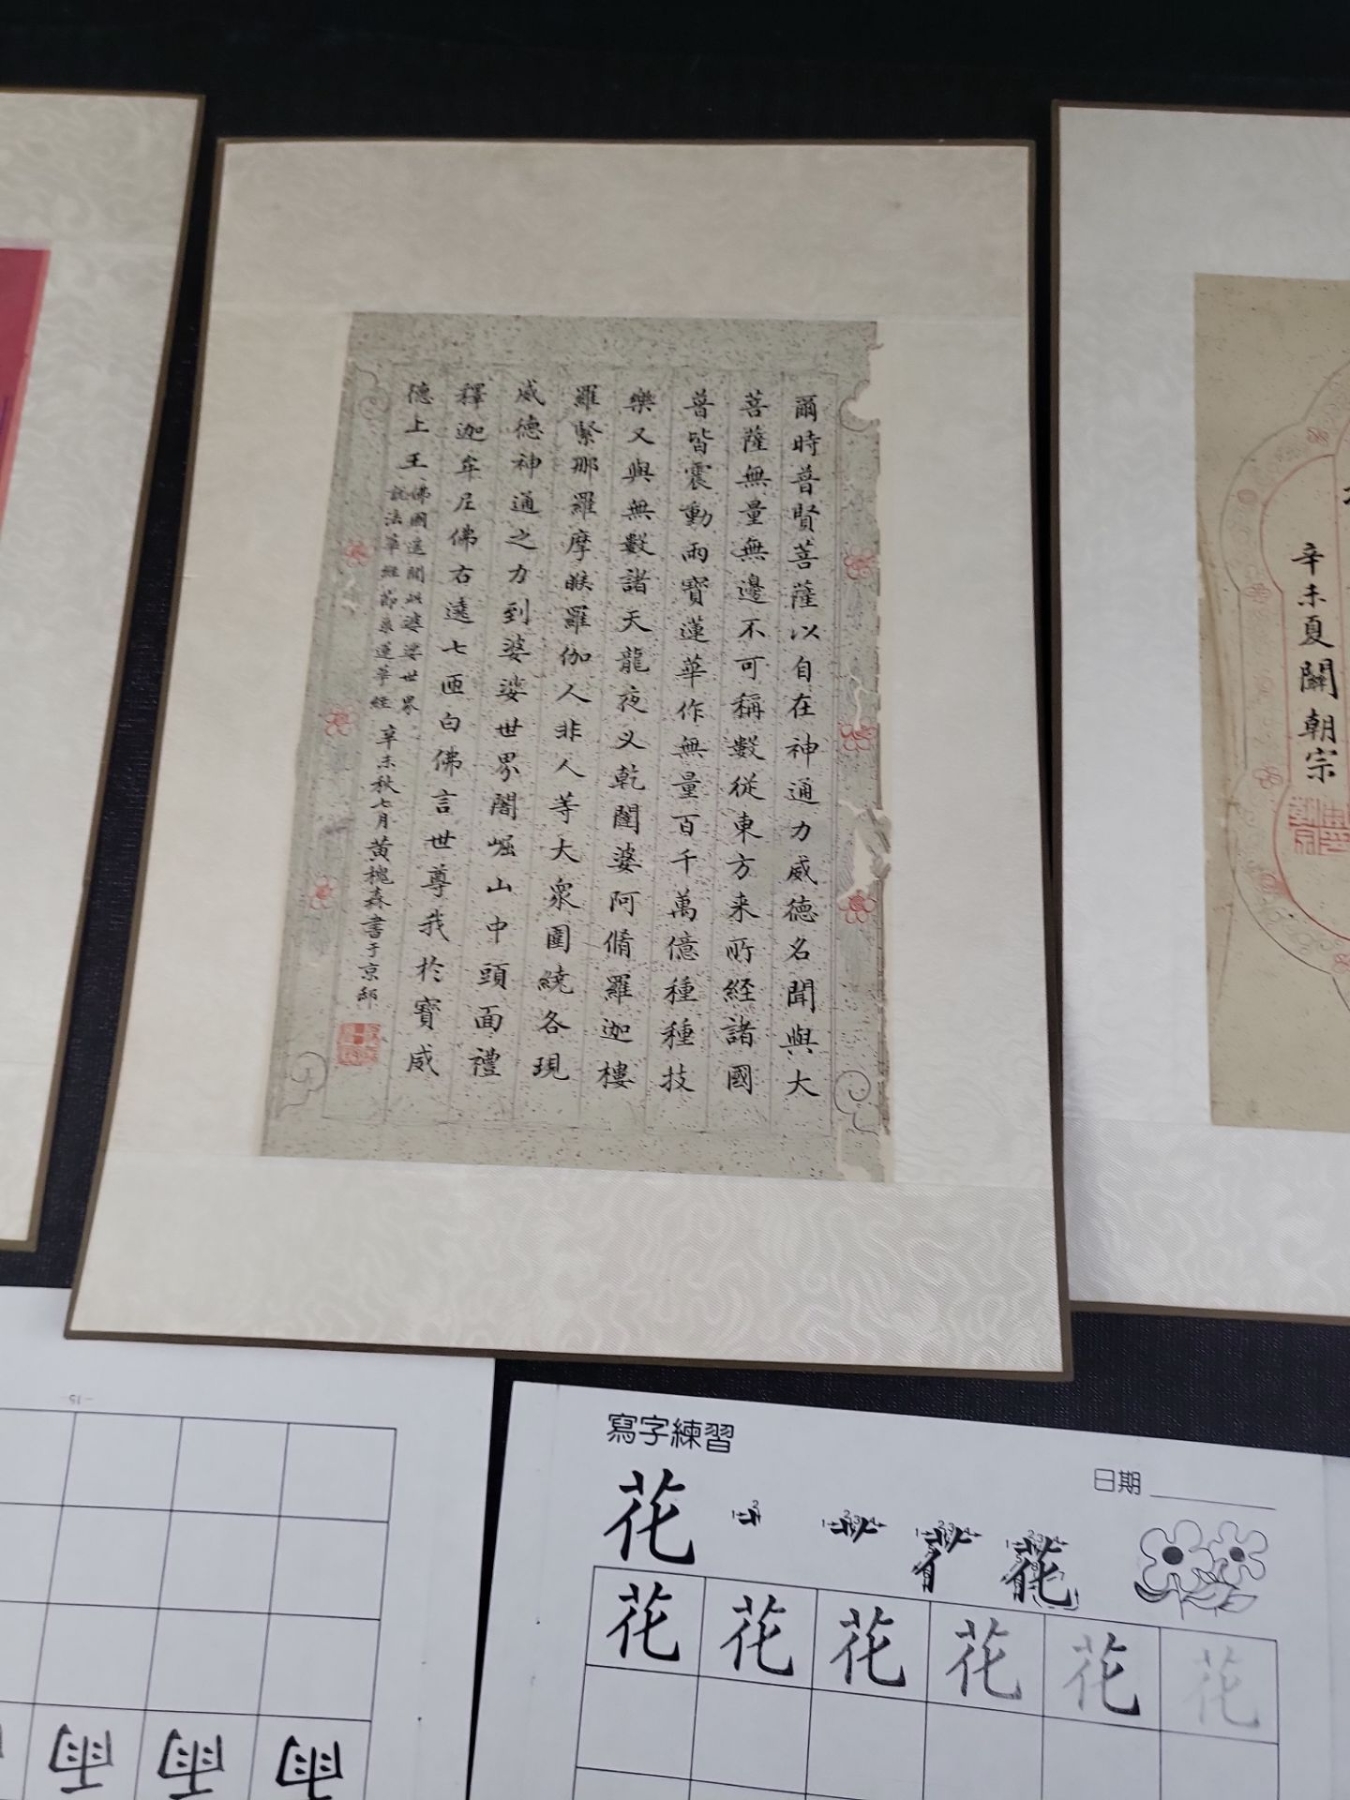 爾時普賢菩薩以自在神通力威德名聞與大
菩薩無量無邊不可稱數從東方来所経諸國
普皆震動雨寶蓮華作無量百千萬億種種技
樂又與無數諸天龍夜义乾闥婆阿脩羅迦樓
羅緊那羅摩睺羅伽人非人等大衆圍繞各現
威德神通之力到娑婆世界闍崛山中頭面禮
釋迦牟尼佛右遶七匝白佛言世尊我於寶威
德上王
佛國遥聞此娑婆世界
說法華經
蓮華經
辛未秋七月黄槐森書于京邸
辛未夏關朝宗
寫字練習
日期
花
花 花 花 花 花 花